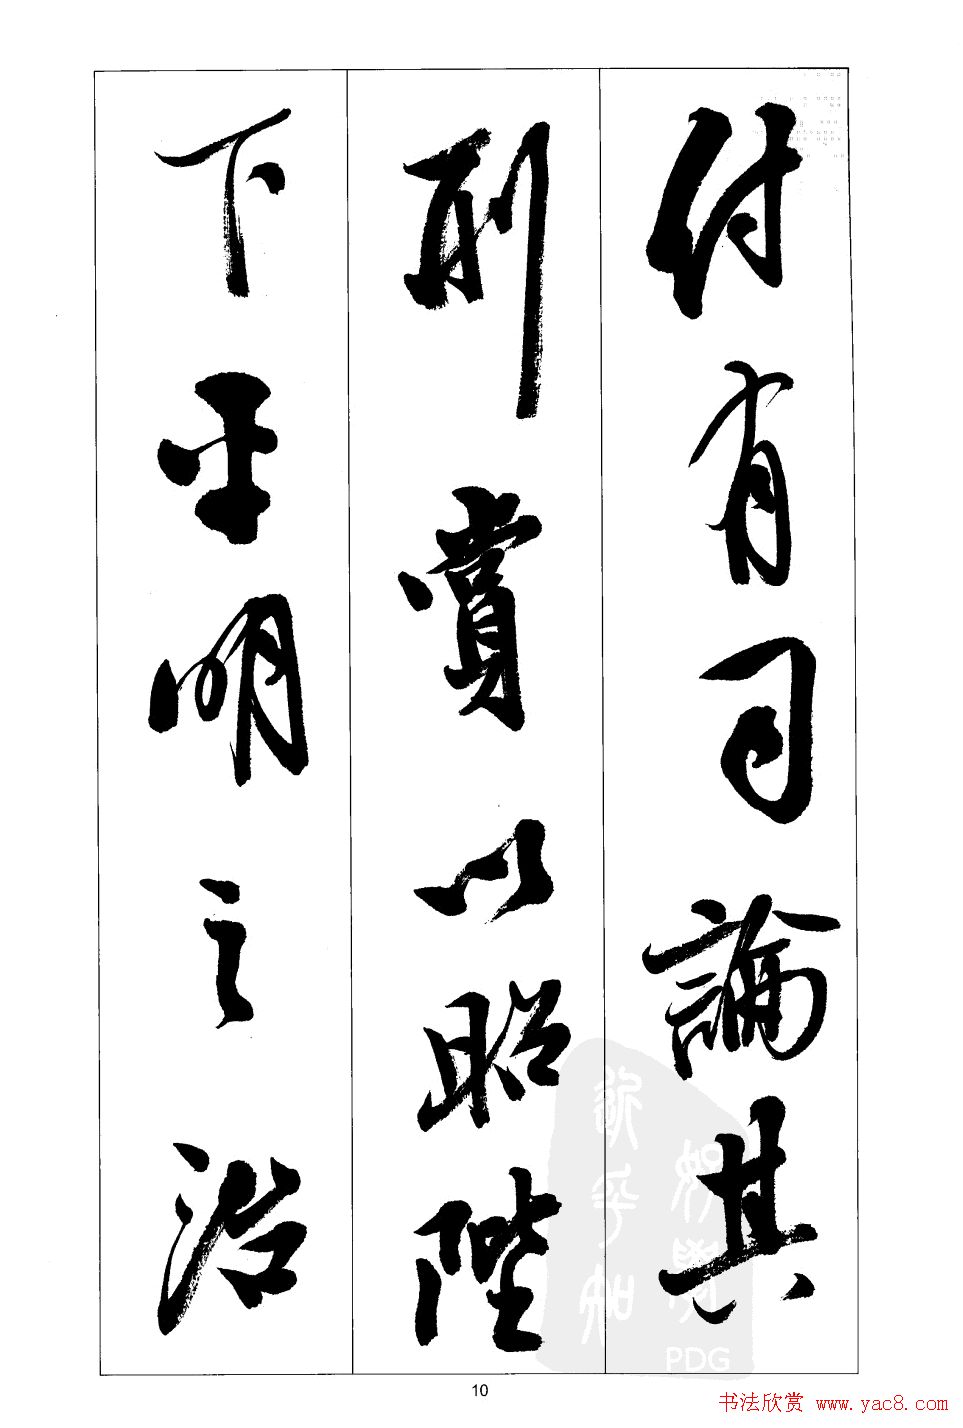 付有司論其
刑賞以昭陛
下平明之治
PDG
10
书法欣赏 www.yac8.com